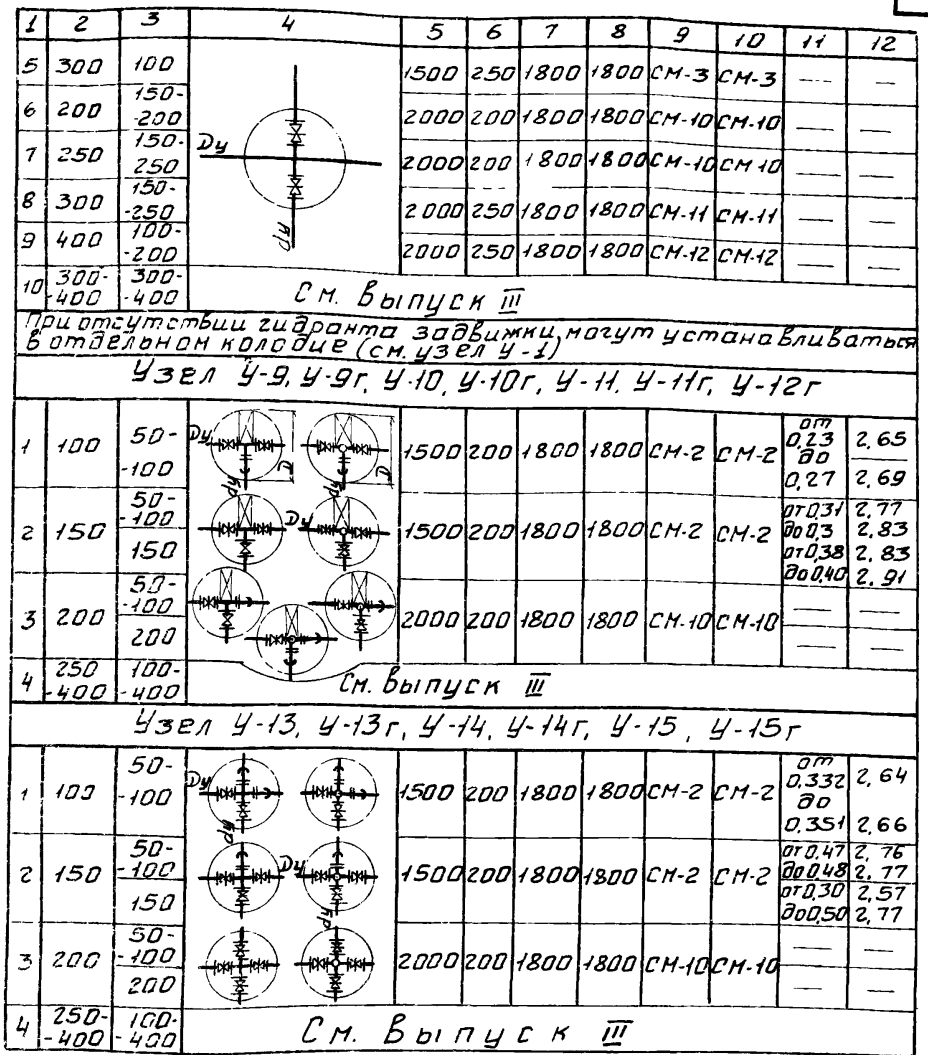 1 2 3 4 5 6 7 8 9 10 11 12
5 300 100 1500 250 1800 1800 СМ-3 СМ-3 — —
6 200 150-
-200 2000 200 1800 1800 СМ-10 СМ-10 — —
Dу
7 250 150-
250 2000 200 1800 1800 СМ-10 СМ-10 — —
8 300 150-
-250 2000 250 1800 1800 СМ-11 СМ-11 — —
dу
9 400 100-
-200 2000 250 1800 1800 СМ-12 СМ-12 — —
10 300- 300-
-400 -400 См. Выпуск III
При отсутствии гидранта задвижки могут устанавливаться
в отдельном колодце (см. узел У-1)
Узел У-9, У-9г, У-10, У-10г, У-11, У-11г, У-12г
1 100 50-
-100 Dу D D dу dу 1500 200 1800 1800 СМ-2 СМ-2 от
0,23 2,65
до
0,27 2,69
2 150 50-
-100
150 Dу 1500 200 1800 1800 СМ-2 СМ-2 от 0,31 2,77
до 0,3 2,83
от 0,38 2,83
до 0,40 2,91
3 200 50-
-100
200 2000 200 1800 1800 СМ-10 СМ-10 — —
— —
4 250 100-
-400 -400 См. Выпуск III
Узел У-13, У-13г, У-14, У-14г, У-15, У-15г
1 100 50-
-100 Dу dу 1500 200 1800 1800 СМ-2 СМ-2 от
0,332 2,64
до
0,351 2,66
2 150 50-
-100
150 Dу dу 1500 200 1800 1800 СМ-2 СМ-2 от 0,47 2,76
до 0,48 2,77
от 0,30 2,57
до 0,50 2,77
3 200 50-
-100
200 2000 200 1800 1800 СМ-10 СМ-10 — —
— —
4 250- 100-
-400 -400 См. Выпуск III